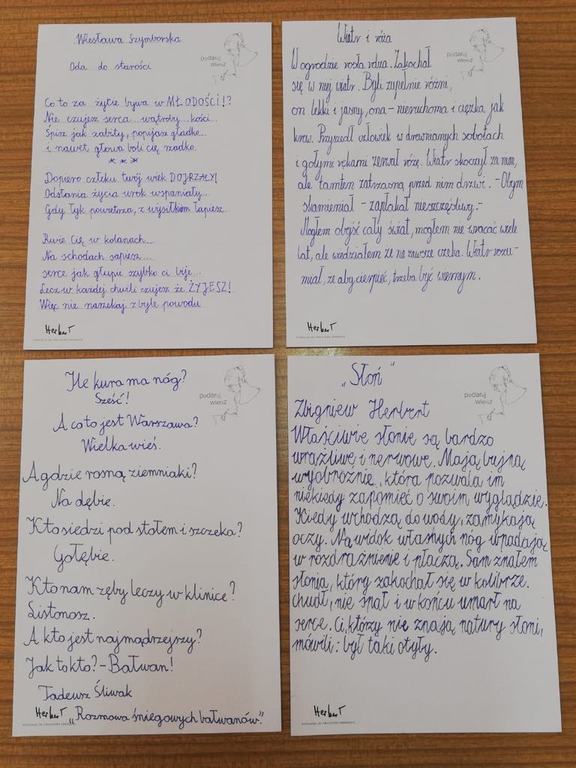 Wiesława Szymborska
podaruj
wiersz
Oda do starości
Co to za życie bywa w MŁODOŚCI!?
Nie czujesz serca... wątroby... kości...
Śpisz jak zabity, popijasz gładko...
i nawet głowa boli cię rzadko.
***
Dopiero człeku twój wiek DOJRZAŁY!
Odsłania życia urok wspaniały...
Gdy łyk powietrza, z wysiłkiem łapiesz...
Rwie Cię w kolanach...
Na schodach sapiesz...
serce jak głupie szybko ci bije...
Lecz w każdej chwili czujesz że ŻYJESZ!
Więc nie narzekaj z byle powodu
Herbert
Wiatr i róża
W ogrodzie rosła róża. Zakochał
się w niej wiatr. Byli zupełnie różni,
on lekki i jasny, ona - nieruchoma i ciężka jak
krew. Przyszedł człowiek w drewnianych sabotach
i gołymi rękami zerwał różę. Wiatr skoczył za nim,
ale tamten zatrzasnął przed nim drzwi. - Obym
skamieniał - zapłakał nieszczęśliwy. -
Mogłem obejść cały świat, mogłem nie wracać wiele
lat, ale wiedziałem że na zawsze czeka. Wiatr rozu-
miał, że aby cierpieć, trzeba być wiernym.
Herbert
Ile kura ma nóg?
Sześć!
podaruj
wiersz
A co to jest Warszawa?
Wielka wieś.
A gdzie rosną ziemniaki?
Na dębie.
Kto siedzi pod stołem i szczeka?
Gołębie.
Kto nam zęby leczy w klinice?
Listonosz.
A kto jest najmądrzejszy?
Jak to kto? - Bałwan!
Tadeusz Śliwak
Herbert „Rozmowa śniegowych bałwanów"
„Słoń"
podaruj
wiersz
Zbigniew Herbert
Właściwie słonie są bardzo
wrażliwe i nerwowe. Mają bujną
wyobraźnię, która pozwala im
niekiedy zapomieć o swoim wyglądzie.
Kiedy wchodzą do wody, zamykają
oczy. Na widok własnych nóg wpadają
w rozdrażnienie i płaczą. Sam znałem
słonia, który zakochał się w kolibrze.
chudł, nie spał i w końcu umarł na
serce. Ci, którzy nie znają natury słoni,
mówili: był taki otyły.
Herbert